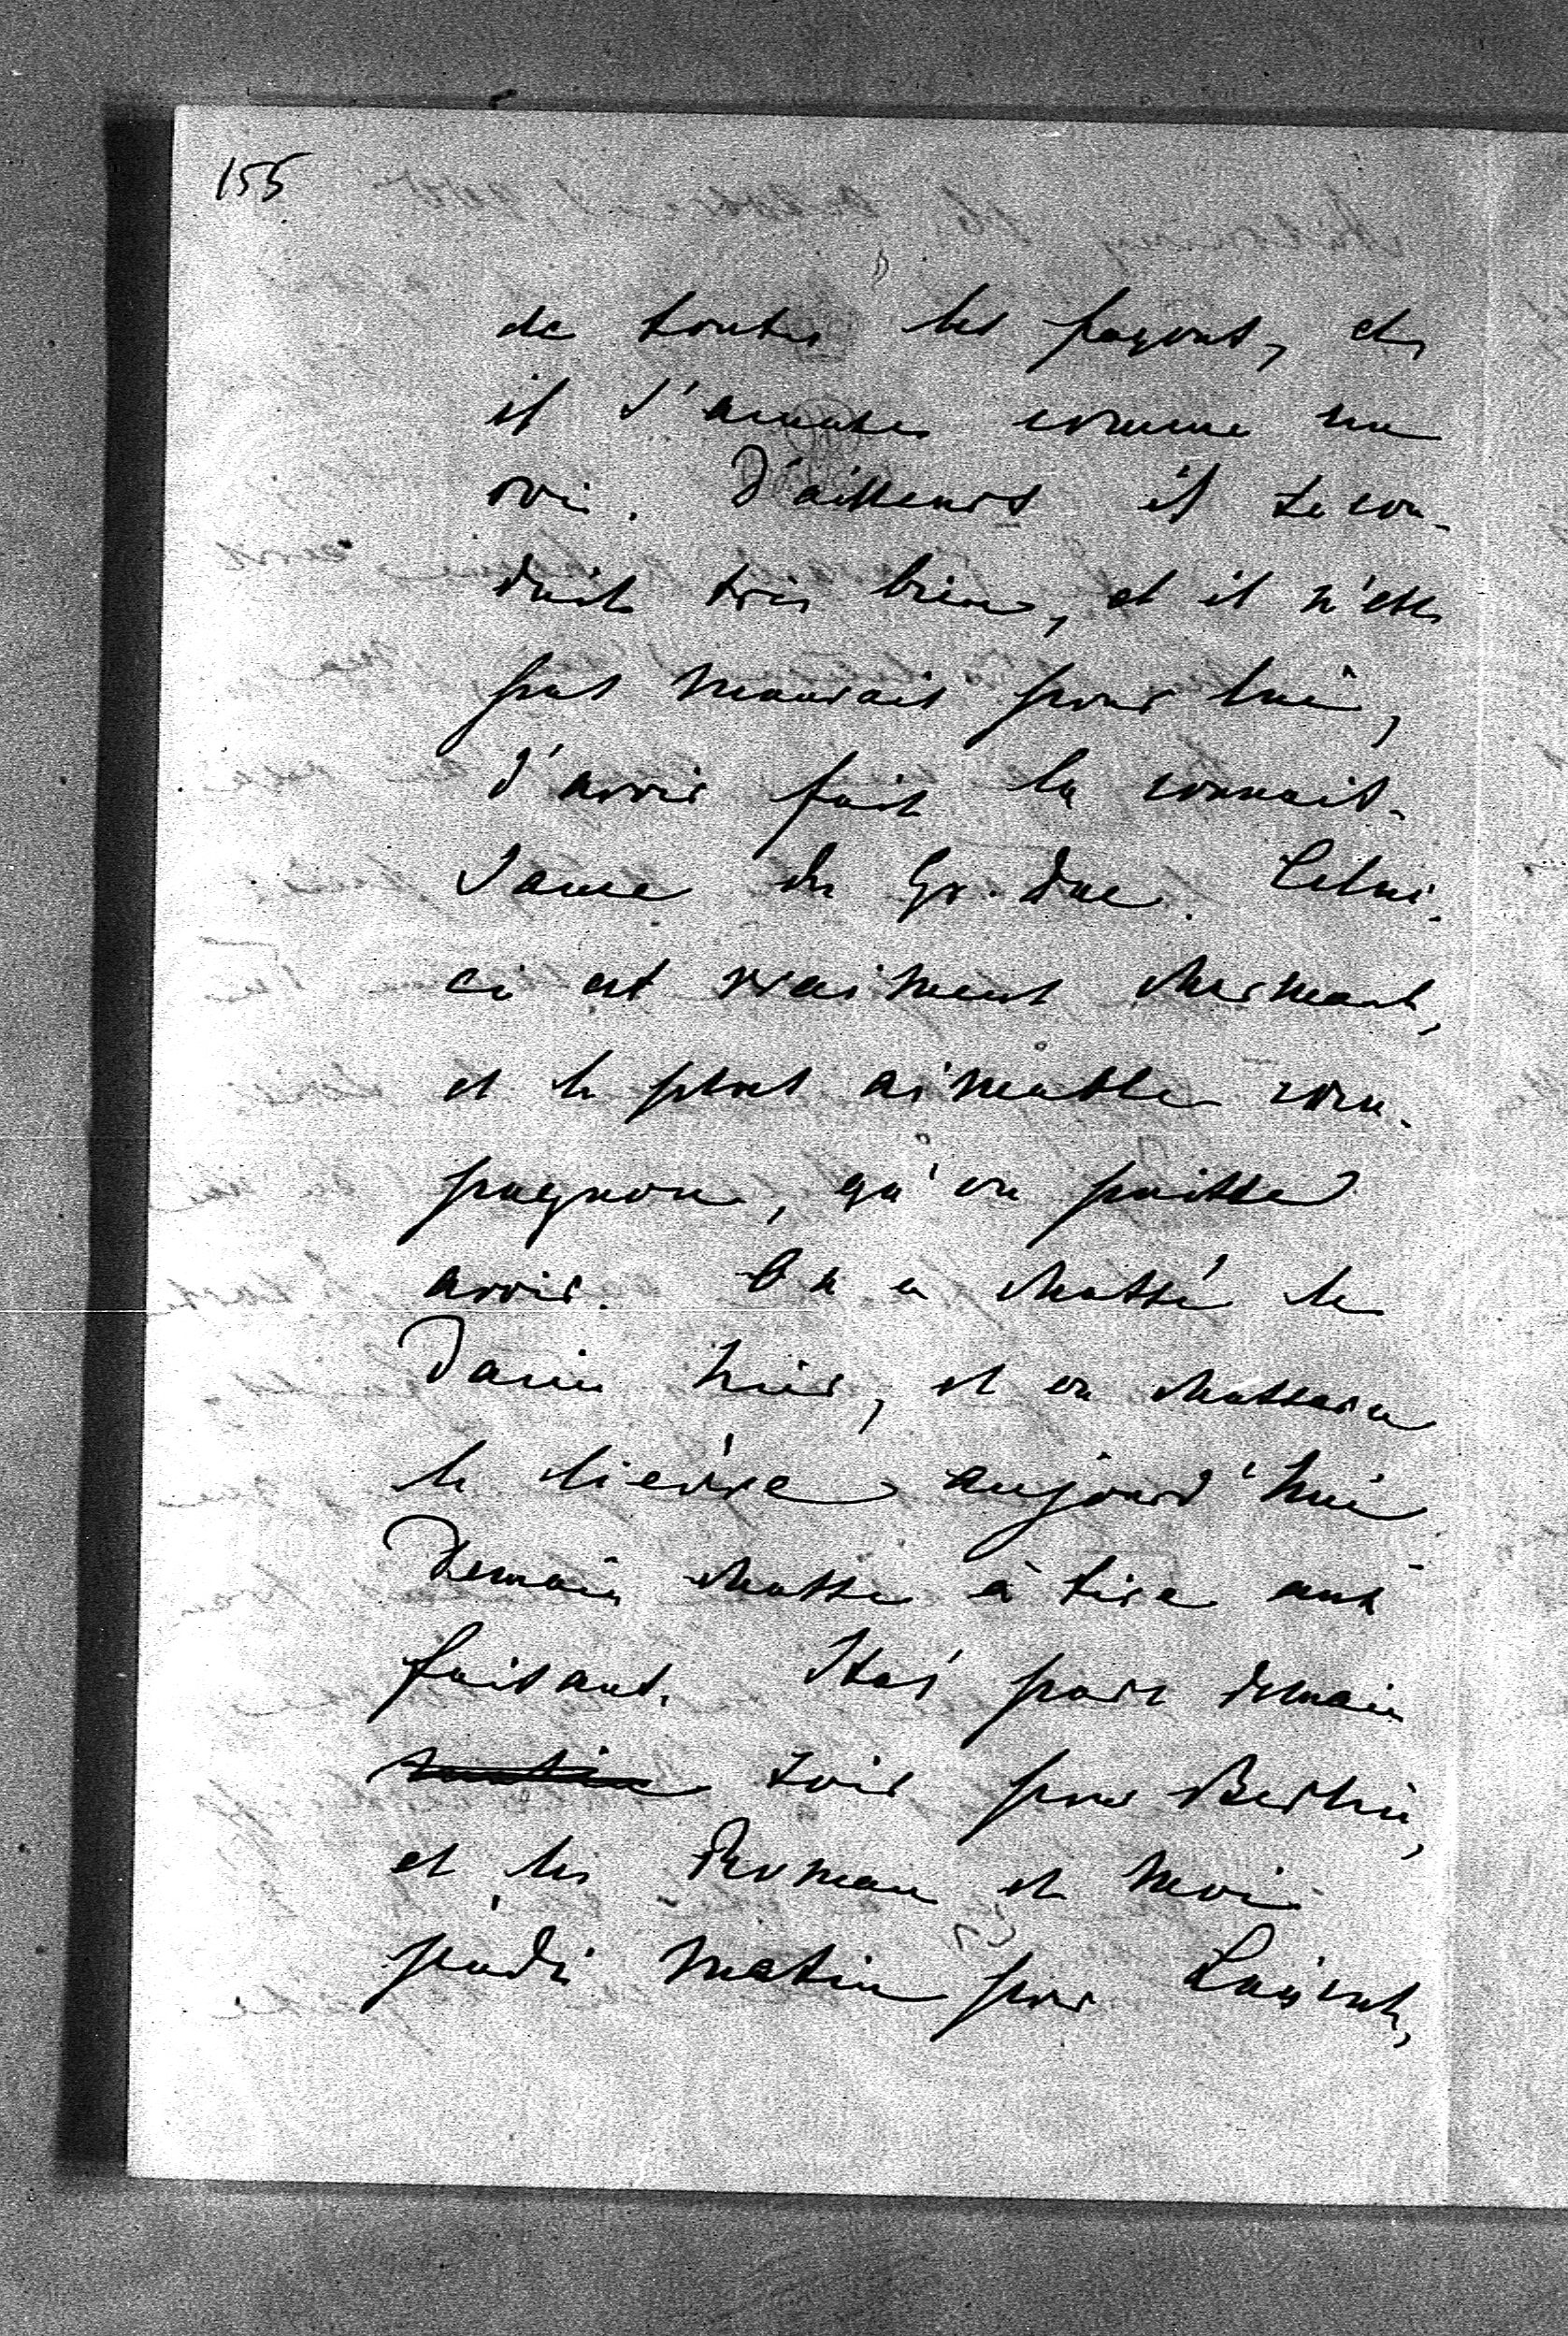 155
de toutes les façons, et
il s'amuse comme un
roi. D'ailleurs il se con-
duit très bien, et il n'est
pas mauvais pour lui,
d'avoir fait la connais-
sance du Gr. Duc. Celui-
ci est vraiment charmant,
et le plus aimable com-
pagnon, qu'on puisse
avoir. On a chassé le
daim hier, et on chassera
le lièvre aujourd'hui.
Demain chasse à tire aux
faisans. Stas part demain
matin soir pour Berlin,
et les Roman et moi
jeudi matin pour Łańcut,